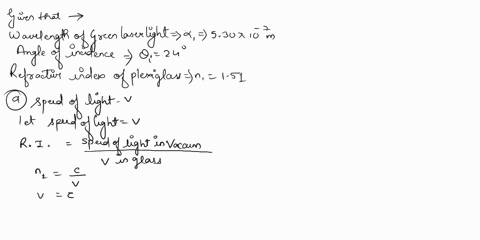 Given that →
Wavelength of Green laser light ⇒ α₁ ⇒ 5.30 × 10⁻² m
Angle of incidence ⇒ θ₁ = 24°
Refractive index of plexiglass ⇒ n₁ = 1.51
(a) speed of light = v
let speed of light = v
R.I. = speed of light in Vacuum / V in glass
n₁ = c/v
v = c